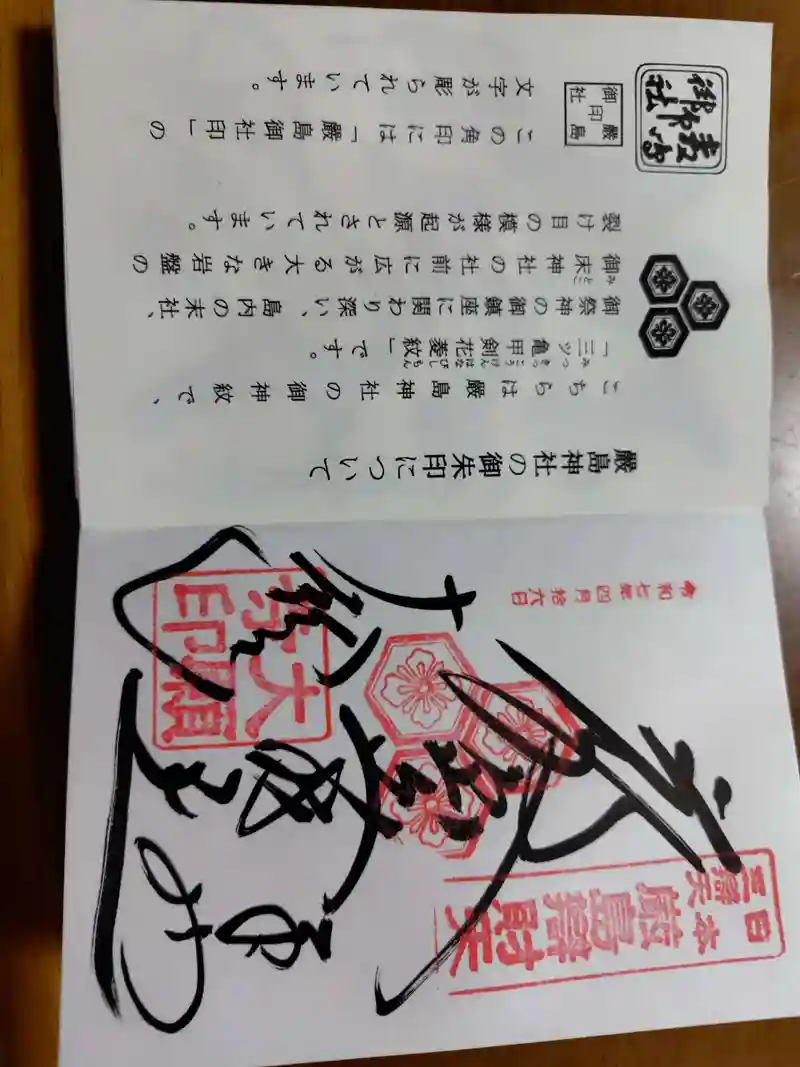 嚴島神社の御朱印について
こちらは嚴島神社の御神紋で、
「三ッ亀甲剣花菱紋」です。
みっ きっこうけんはなびしもん
御祭神の御鎮座に関わり深い、島内の末社、
御床神社の社前に広がる大きな岩盤の
みとこ
裂け目の模様が起源とされています。
嚴島
御社印
この角印には「嚴島御社印」の
文字が彫られています。
日本
三辨天
厳島辨財天
奉拝
令和七年四月拾六日
大願
寺印